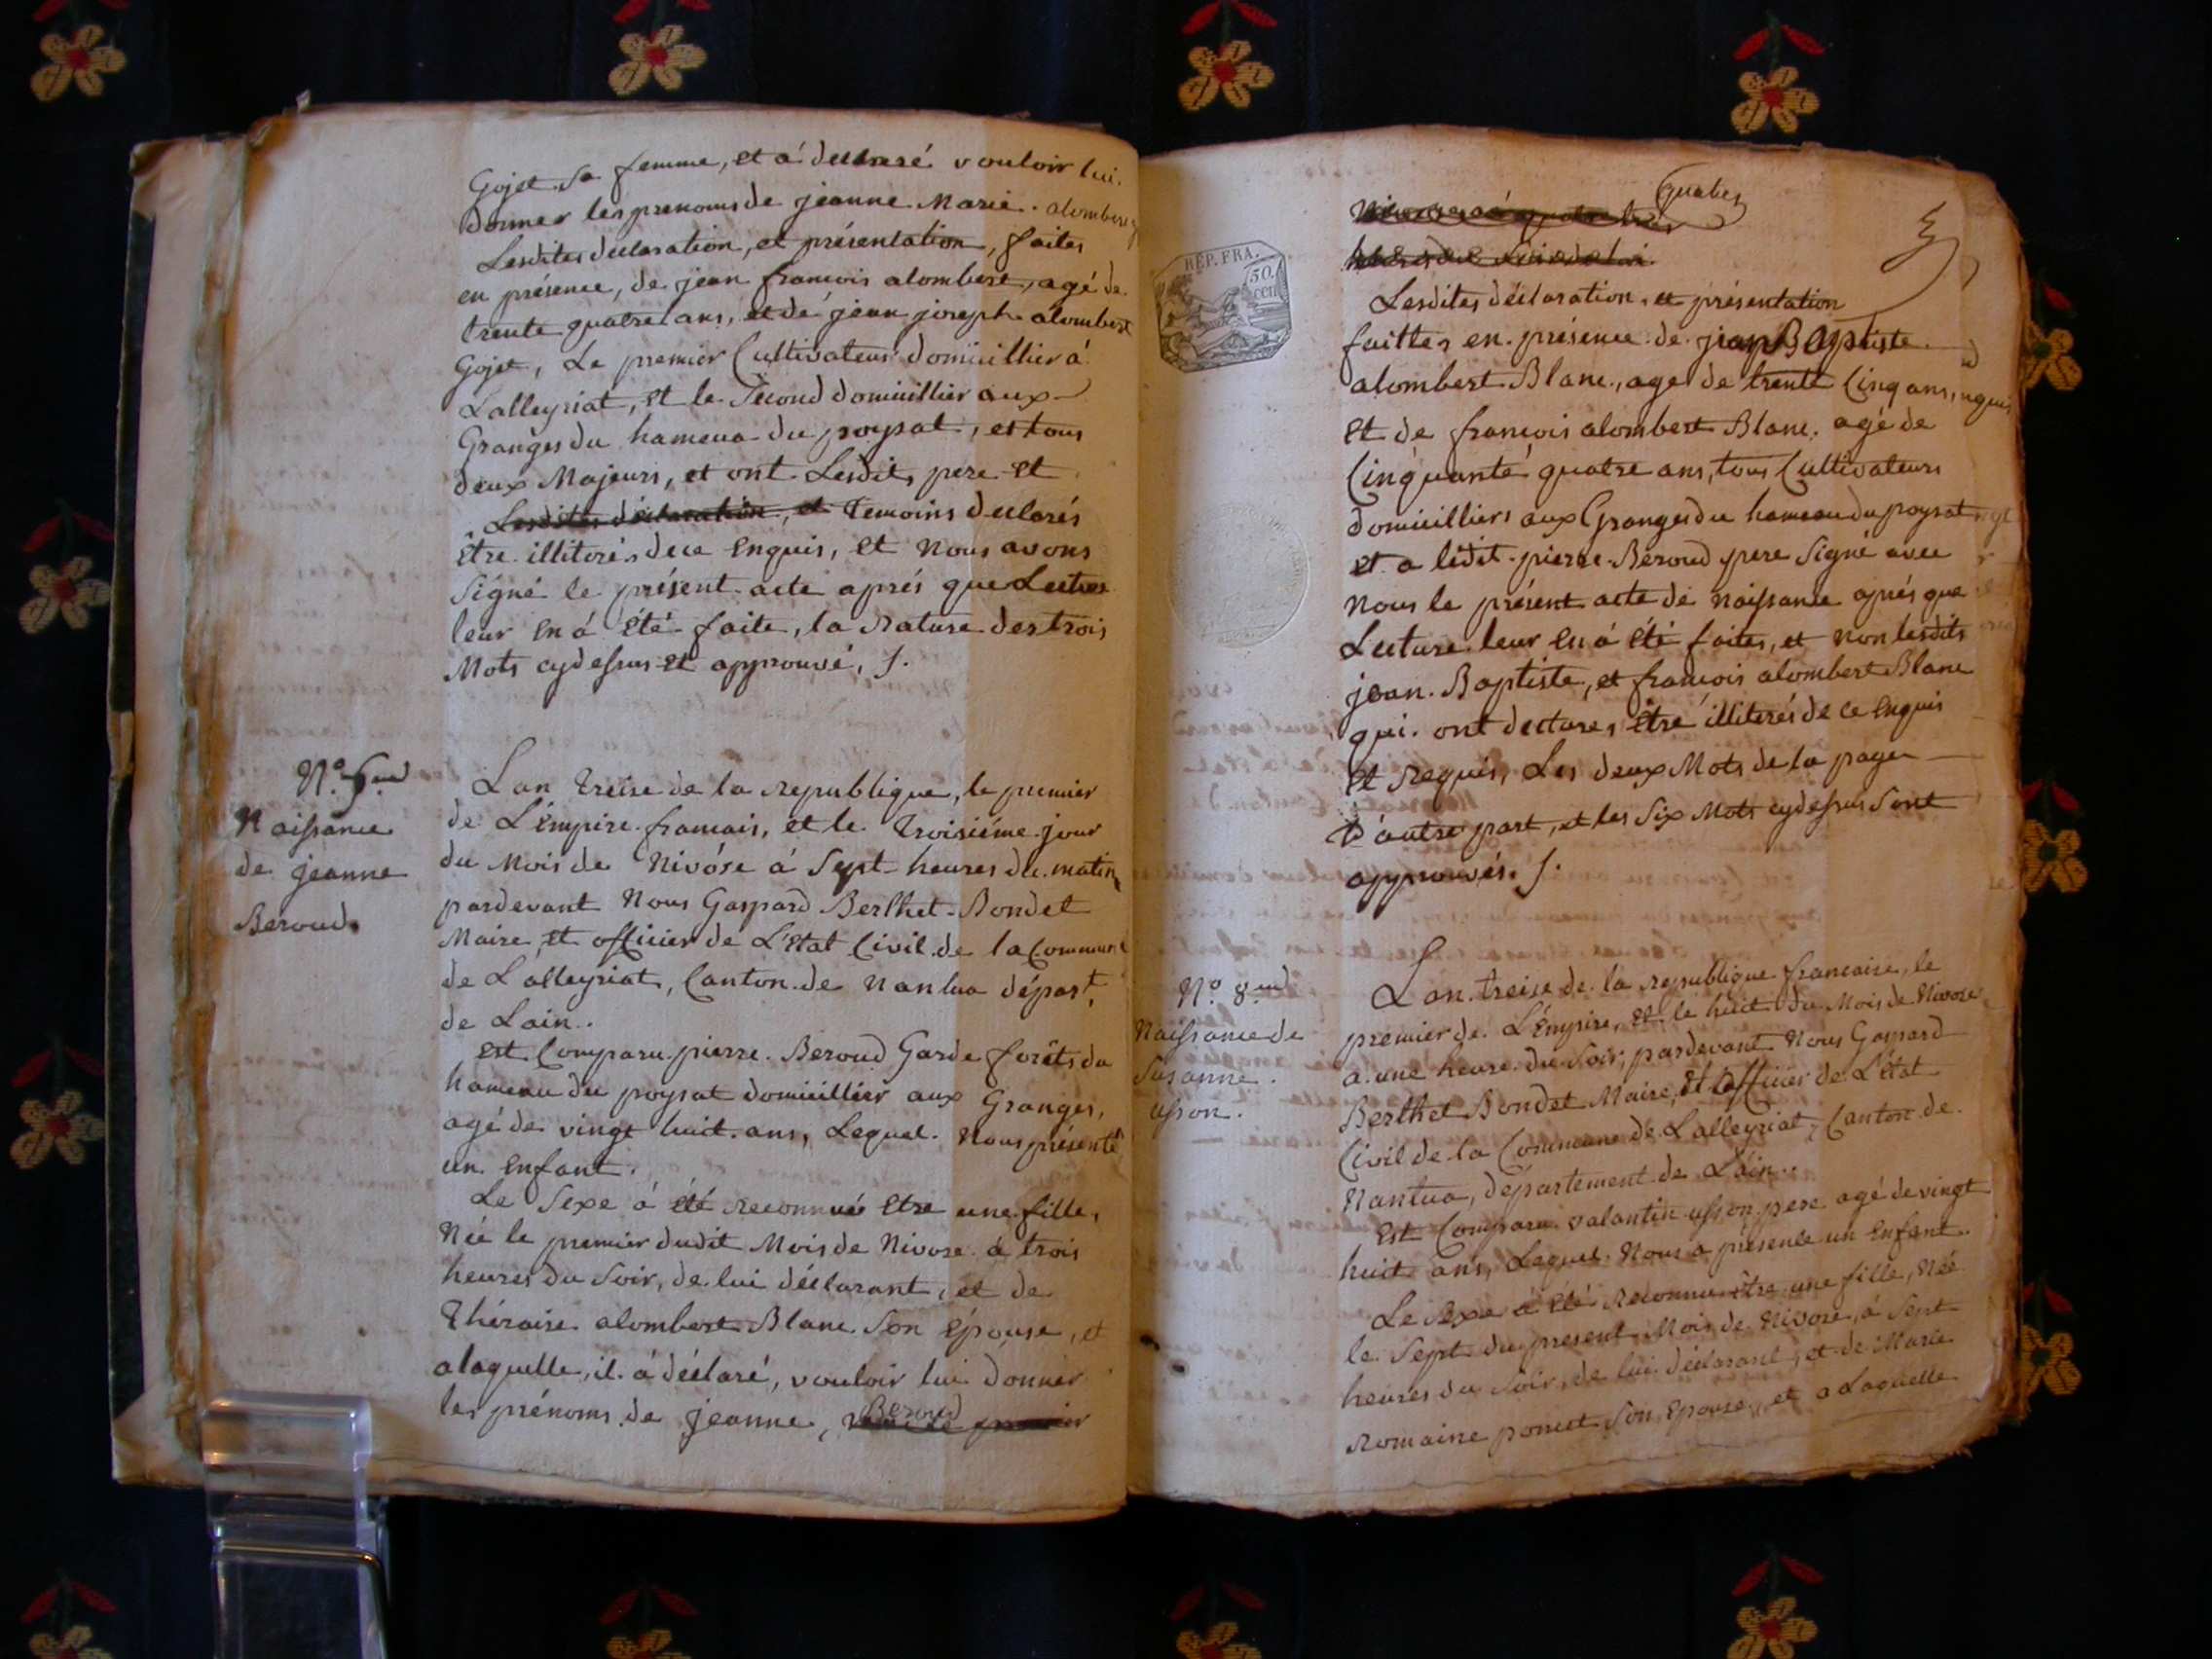 Gojet Sa femme, et á declaré vouloir lui
donner les prenoms de jeanne Marie. alombert
Lesdites declaration, et présentation, faites
en présence, de jean francois alombert, agé de
trente quatre ans, et de jean joseph alombert
Gojet, Le premier Cultivateur domicillier á
Lalleyriat, et le Second domicillier aux
Granges du hameua du poysat, et tous
deux Majeurs, et ont Lesdits pere et
Lesdites déclaration, et temoins declarés
être illitorés dece Enquis, et Nous avons
Signé le présent acte aprés que Lecture
leur en á été faite, la Rature des trois
Mots cydessus et approuvé, /.
Naissance
de jeanne
Beroud.
Lan treise de la republique, le premier
de L'émpire francais, et le troisiéme jour
du Mois de Nivóse á Sept heures du matin
pardevant Nous Gaspard Berthet-Bondet
Maire et officier de L'Etat Civil de la Commune
de Lalleyriat, Canton de Nantua départ.
de Lain.
Est Comparu pierre Beroud Garde forêts du
hameau du poysat domicillier aux Granges,
agé de vingt huit ans, Lequel Nous présenté
un Enfant.
Le Sexe á été reconnué Etre une fille,
Née le premier dudit Mois de Nivose á trois
heures du Soir, de lui déclarant, et de
Théraise alombert Blanc Son épouse, et
alaquelle, il á déclaré, vouloir lui donner
les prénoms de jeanne, Beroud
REP. FRA.
50.
cen
Lesdites déclaration, et présentation
faittes en présence de jean Baptiste
alombert Blanc, age de trente Cinq ans,
Et de francois alombert Blanc, agé de
Cinquante quatre ans, tous Cultivateurs
domicilliers aux Granges du hameau du poysat
et a ledit pierre Beroud pere Signé avec
Nous le présent acte de Naissance aprés que
Lecture leur en á été faites, et Non lesdits
jean Baptiste, et francois alombert Blanc
qui ont declares être illiterés de ce Enquis
Et Requis, Les deux Mots de la page
D'autre part, et les Six Mots cydessus Sont
approuvés. /.
N.º 8.
Naissance de
Susanne
usson.
Lan treise de la republique francaise, le
premier de L'Empire, et le huit du Mois de Nivose
a une heure du Soir, pardevant Nous Gaspard
Berthet Bondet Maire, et officier de L'état
Civil de la Commune de Lalleyriat, Canton de
Nantua, département de Lain.
Est Comparu valantin usson pere agé de vingt
huit ans, Lequel Nous a présenté un Enfant.
Le Sexe á été reconnu être une fille, Née
le Sept du present Mois de Nivose, á Sept
heures du Soir, de lui déclarant, et de Marie
Romaine poncet Son Epouse, et a Laquelle